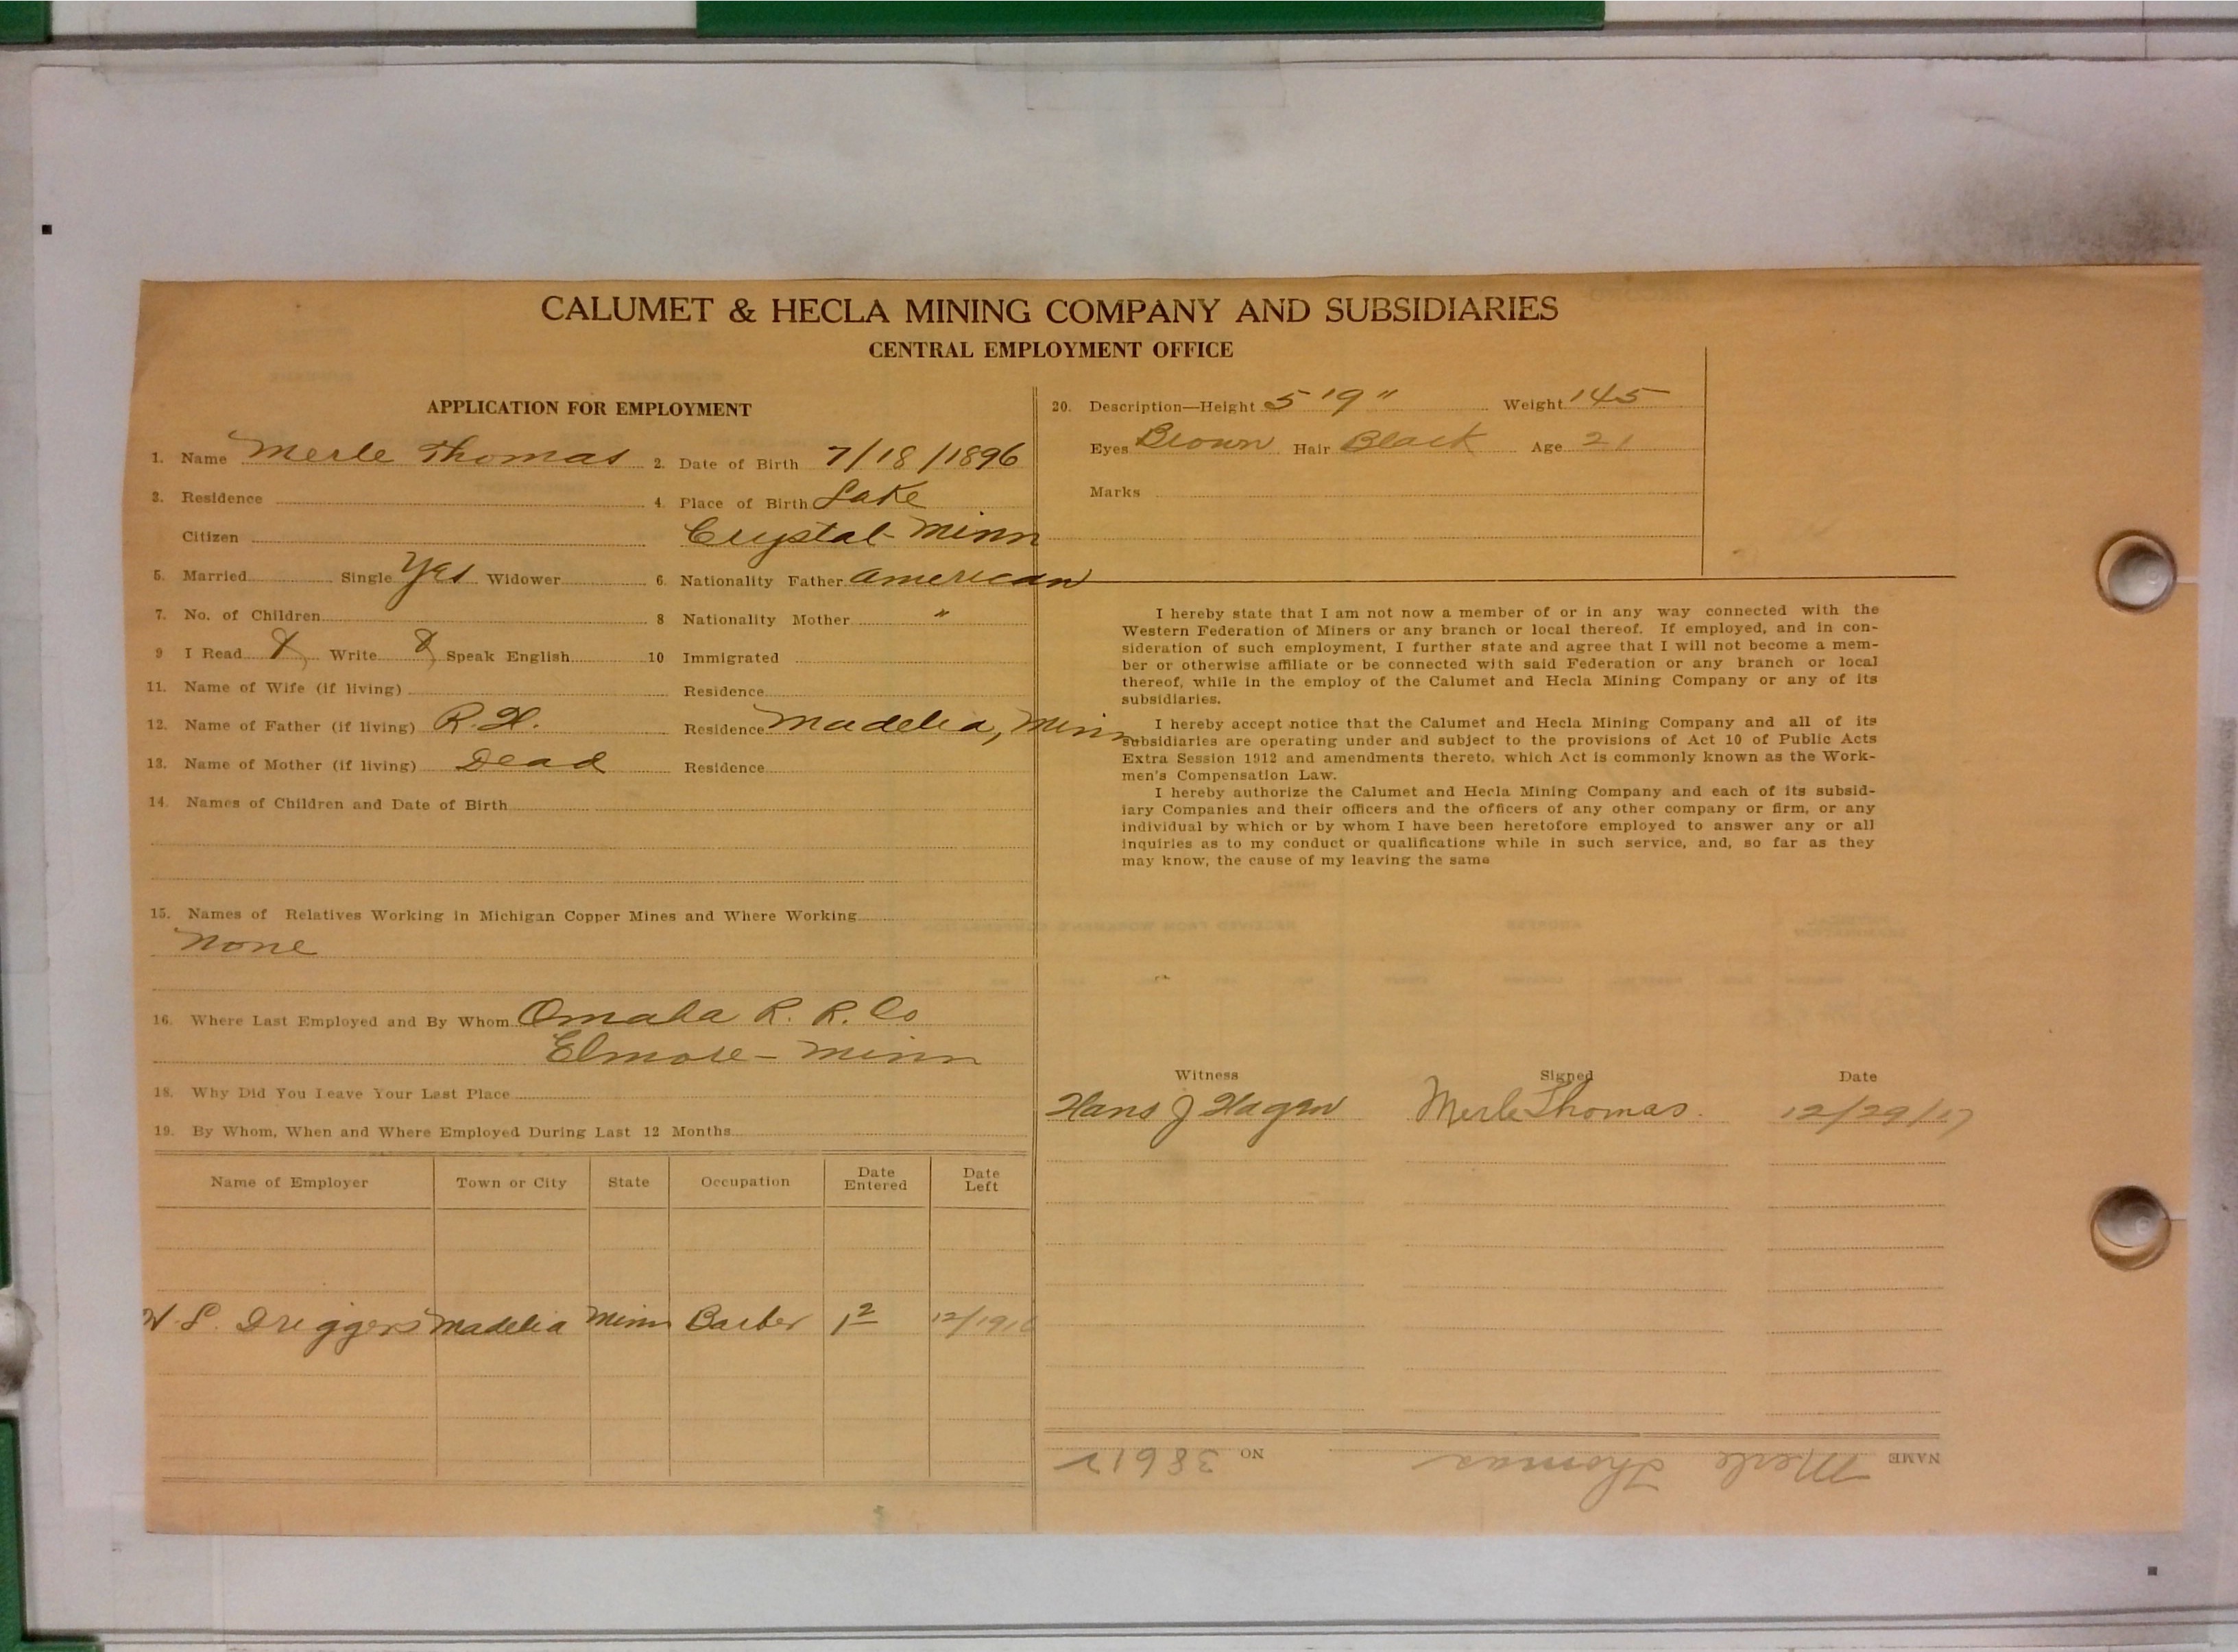 CALUMET & HECLA MINING COMPANY AND SUBSIDIARIES
CENTRAL EMPLOYMENT OFFICE
APPLICATION FOR EMPLOYMENT
1. Name Merle Thomas 2. Date of Birth 7/18/1896
3. Residence 4. Place of Birth Lake
Citizen Crystal Minn
5. Married Single Yes Widower 6. Nationality Father American
7. No. of Children 8 Nationality Mother "
9 I Read Write Speak English 10 Immigrated
11. Name of Wife (if living) Residence
12. Name of Father (if living) R.H. Residence Madelia, Minn
13. Name of Mother (if living) Dead Residence
14. Names of Children and Date of Birth
15. Names of Relatives Working in Michigan Copper Mines and Where Working
None
16. Where Last Employed and By Whom Omaha R. R. Co
Elmore - Minn
18. Why Did You Leave Your Last Place
19. By Whom, When and Where Employed During Last 12 Months
Name of Employer Town or City State Occupation Date Entered Date Left
Driggers Madelia Minn Barber
20. Description—Height 5'9" Weight 145
Eyes Brown Hair Black Age 21
Marks
I hereby state that I am not now a member of or in any way connected with the
Western Federation of Miners or any branch or local thereof. If employed, and in con-
sideration of such employment, I further state and agree that I will not become a mem-
ber or otherwise affiliate or be connected with said Federation or any branch or local
thereof, while in the employ of the Calumet and Hecla Mining Company or any of its
subsidiaries.
I hereby accept notice that the Calumet and Hecla Mining Company and all of its
subsidiaries are operating under and subject to the provisions of Act 10 of Public Acts
Extra Session 1912 and amendments thereto, which Act is commonly known as the Work-
men's Compensation Law.
I hereby authorize the Calumet and Hecla Mining Company and each of its subsid-
iary Companies and their officers and the officers of any other company or firm, or any
individual by which or by whom I have been heretofore employed to answer any or all
inquiries as to my conduct or qualifications while in such service, and, so far as they
may know, the cause of my leaving the same
Witness Signed Date
Hans J Hagen Merle Thomas. 12/29/17
NAME Merle Thomas NO 38617